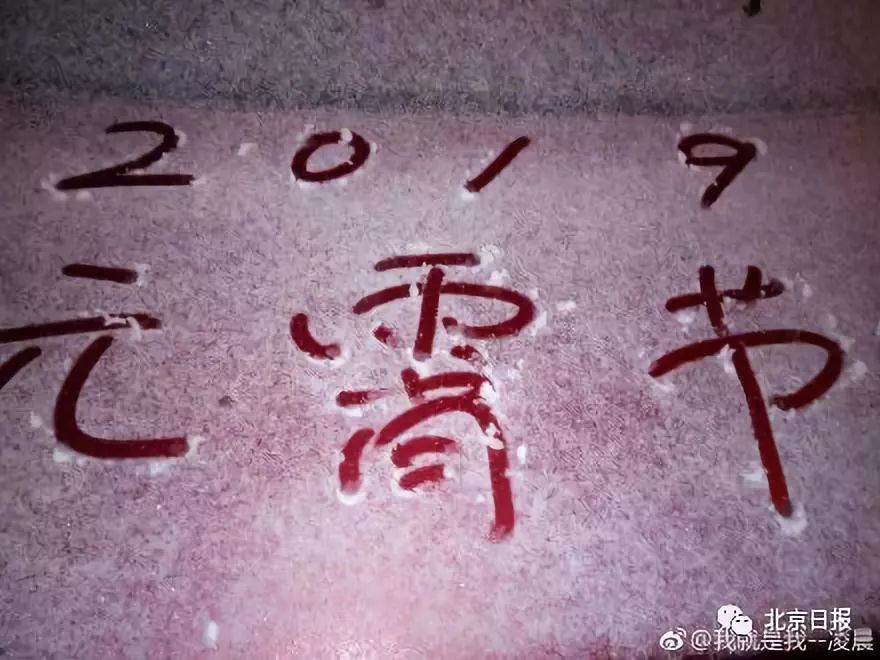 2019
元宵节
北京日报
@我就是我--凌晨